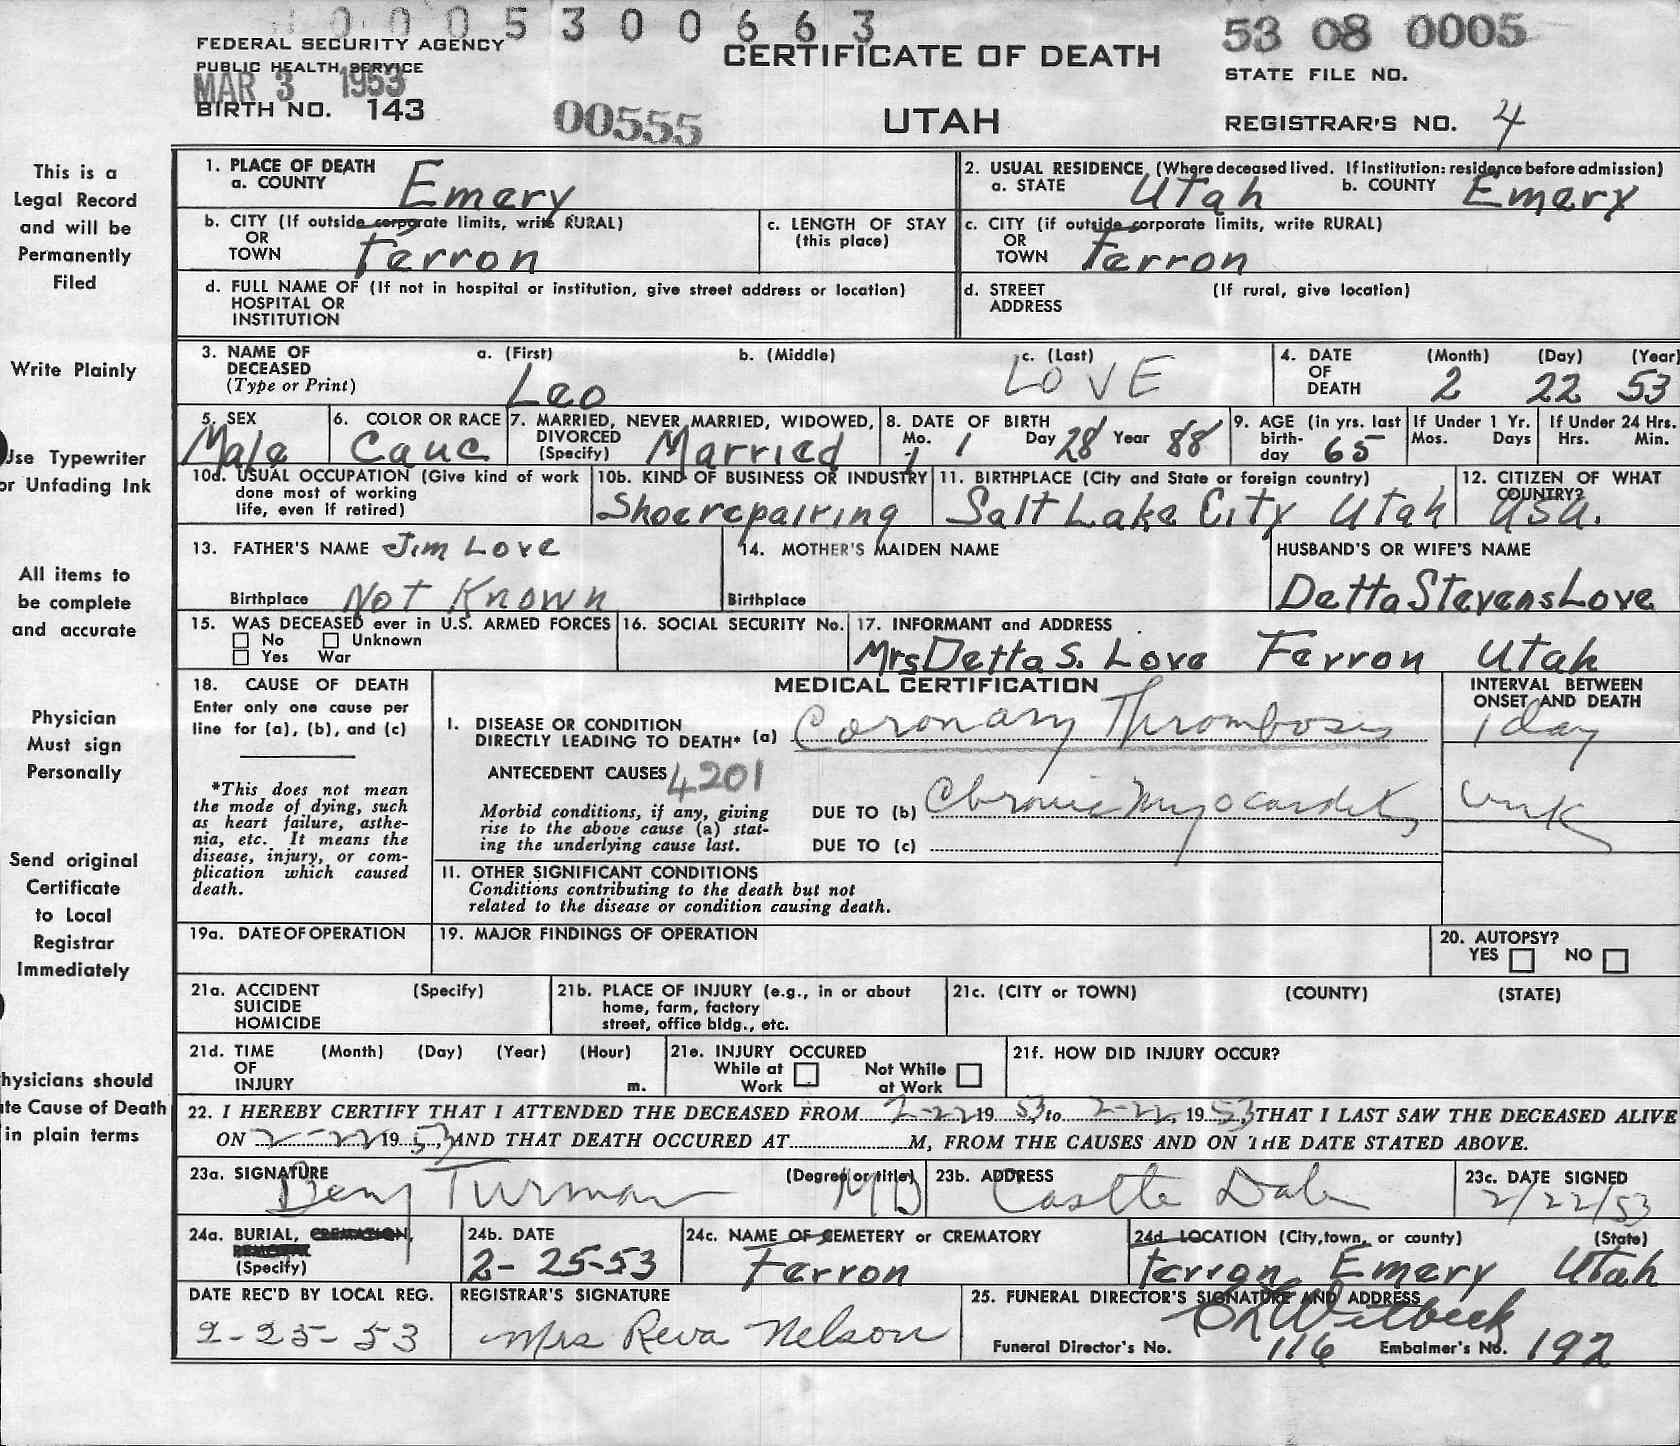 0005300663
FEDERAL SECURITY AGENCY
PUBLIC HEALTH SERVICE
MAR 3 1953
BIRTH NO. 143
00555
CERTIFICATE OF DEATH
UTAH
53 08 0005
STATE FILE NO.
REGISTRAR'S NO. 4
This is a
Legal Record
and will be
Permanently
Filed
Write Plainly
Use Typewriter
or Unfading Ink
All items to
be complete
and accurate
Physician
Must sign
Personally
Send original
Certificate
to Local
Registrar
Immediately
hysicians should
te Cause of Death
in plain terms
1. PLACE OF DEATH
a. COUNTY Emery
2. USUAL RESIDENCE (Where deceased lived. If institution: residence before admission)
a. STATE Utah b. COUNTY Emery
b. CITY (If outside corporate limits, write RURAL)
OR
TOWN Ferron
c. LENGTH OF STAY
(this place)
c. CITY (if outside corporate limits, write RURAL)
OR
TOWN Ferron
d. FULL NAME OF (If not in hospital or institution, give street address or location)
HOSPITAL OR
INSTITUTION
d. STREET (If rural, give location)
ADDRESS
3. NAME OF a. (First) b. (Middle) c. (Last)
DECEASED
(Type or Print) Leo LOVE
4. DATE (Month) (Day) (Year)
OF
DEATH 2 22 53
5. SEX
Male
6. COLOR OR RACE
Cauc
7. MARRIED, NEVER MARRIED, WIDOWED,
DIVORCED
(Specify) Married
8. DATE OF BIRTH
Mo. 1 Day 28 Year 88
9. AGE (in yrs. last
birth-
day 65
If Under 1 Yr.
Mos. Days
If Under 24 Hrs.
Hrs. Min.
10a. USUAL OCCUPATION (Give kind of work
done most of working
life, even if retired)
10b. KIND OF BUSINESS OR INDUSTRY
Shoerepairing
11. BIRTHPLACE (City and State or foreign country)
Salt Lake City Utah
12. CITIZEN OF WHAT
COUNTRY?
USA.
13. FATHER'S NAME Jim Love
Birthplace Not Known
14. MOTHER'S MAIDEN NAME
Birthplace
HUSBAND'S OR WIFE'S NAME
Detta Stevens Love
15. WAS DECEASED ever in U.S. ARMED FORCES
No Unknown
Yes War
16. SOCIAL SECURITY No.
17. INFORMANT and ADDRESS
Mrs Detta S. Love Ferron Utah
18. CAUSE OF DEATH
Enter only one cause per
line for (a), (b), and (c)
*This does not mean
the mode of dying, such
as heart failure, asthe-
nia, etc. It means the
disease, injury, or com-
plication which caused
death.
MEDICAL CERTIFICATION
I. DISEASE OR CONDITION
DIRECTLY LEADING TO DEATH* (a) Coronary Thrombosis
ANTECEDENT CAUSES 4201
Morbid conditions, if any, giving
rise to the above cause (a) stat-
ing the underlying cause last.
DUE TO (b) Chronic Myocarditis
DUE TO (c)
INTERVAL BETWEEN
ONSET AND DEATH
1 day
unk
11. OTHER SIGNIFICANT CONDITIONS
Conditions contributing to the death but not
related to the disease or condition causing death.
19a. DATE OF OPERATION
19. MAJOR FINDINGS OF OPERATION
20. AUTOPSY?
YES NO
21a. ACCIDENT (Specify)
SUICIDE
HOMICIDE
21b. PLACE OF INJURY (e.g., in or about
home, farm, factory
street, office bldg., etc.
21c. (CITY or TOWN) (COUNTY) (STATE)
21d. TIME (Month) (Day) (Year) (Hour)
OF
INJURY m.
21e. INJURY OCCURED
While at Not While
Work at Work
21f. HOW DID INJURY OCCUR?
22. I HEREBY CERTIFY THAT I ATTENDED THE DECEASED FROM 2-22 1953, to 2-22, 1953, THAT I LAST SAW THE DECEASED ALIVE
ON 2-22 1953, AND THAT DEATH OCCURED AT M, FROM THE CAUSES AND ON THE DATE STATED ABOVE.
23a. SIGNATURE (Degree or title)
Benj Turman MD
23b. ADDRESS
Castle Dale
23c. DATE SIGNED
2/22/53
24a. BURIAL, CREMATION,
REMOVAL
(Specify)
24b. DATE
2-25-53
24c. NAME OF CEMETERY or CREMATORY
Ferron
24d. LOCATION (City, town, or county) (State)
Ferron Emery Utah
DATE REC'D BY LOCAL REG.
2-25-53
REGISTRAR'S SIGNATURE
Mrs Reva Nelson
25. FUNERAL DIRECTOR'S SIGNATURE AND ADDRESS
Witbeck
Funeral Director's No. 116 Embalmer's No. 192